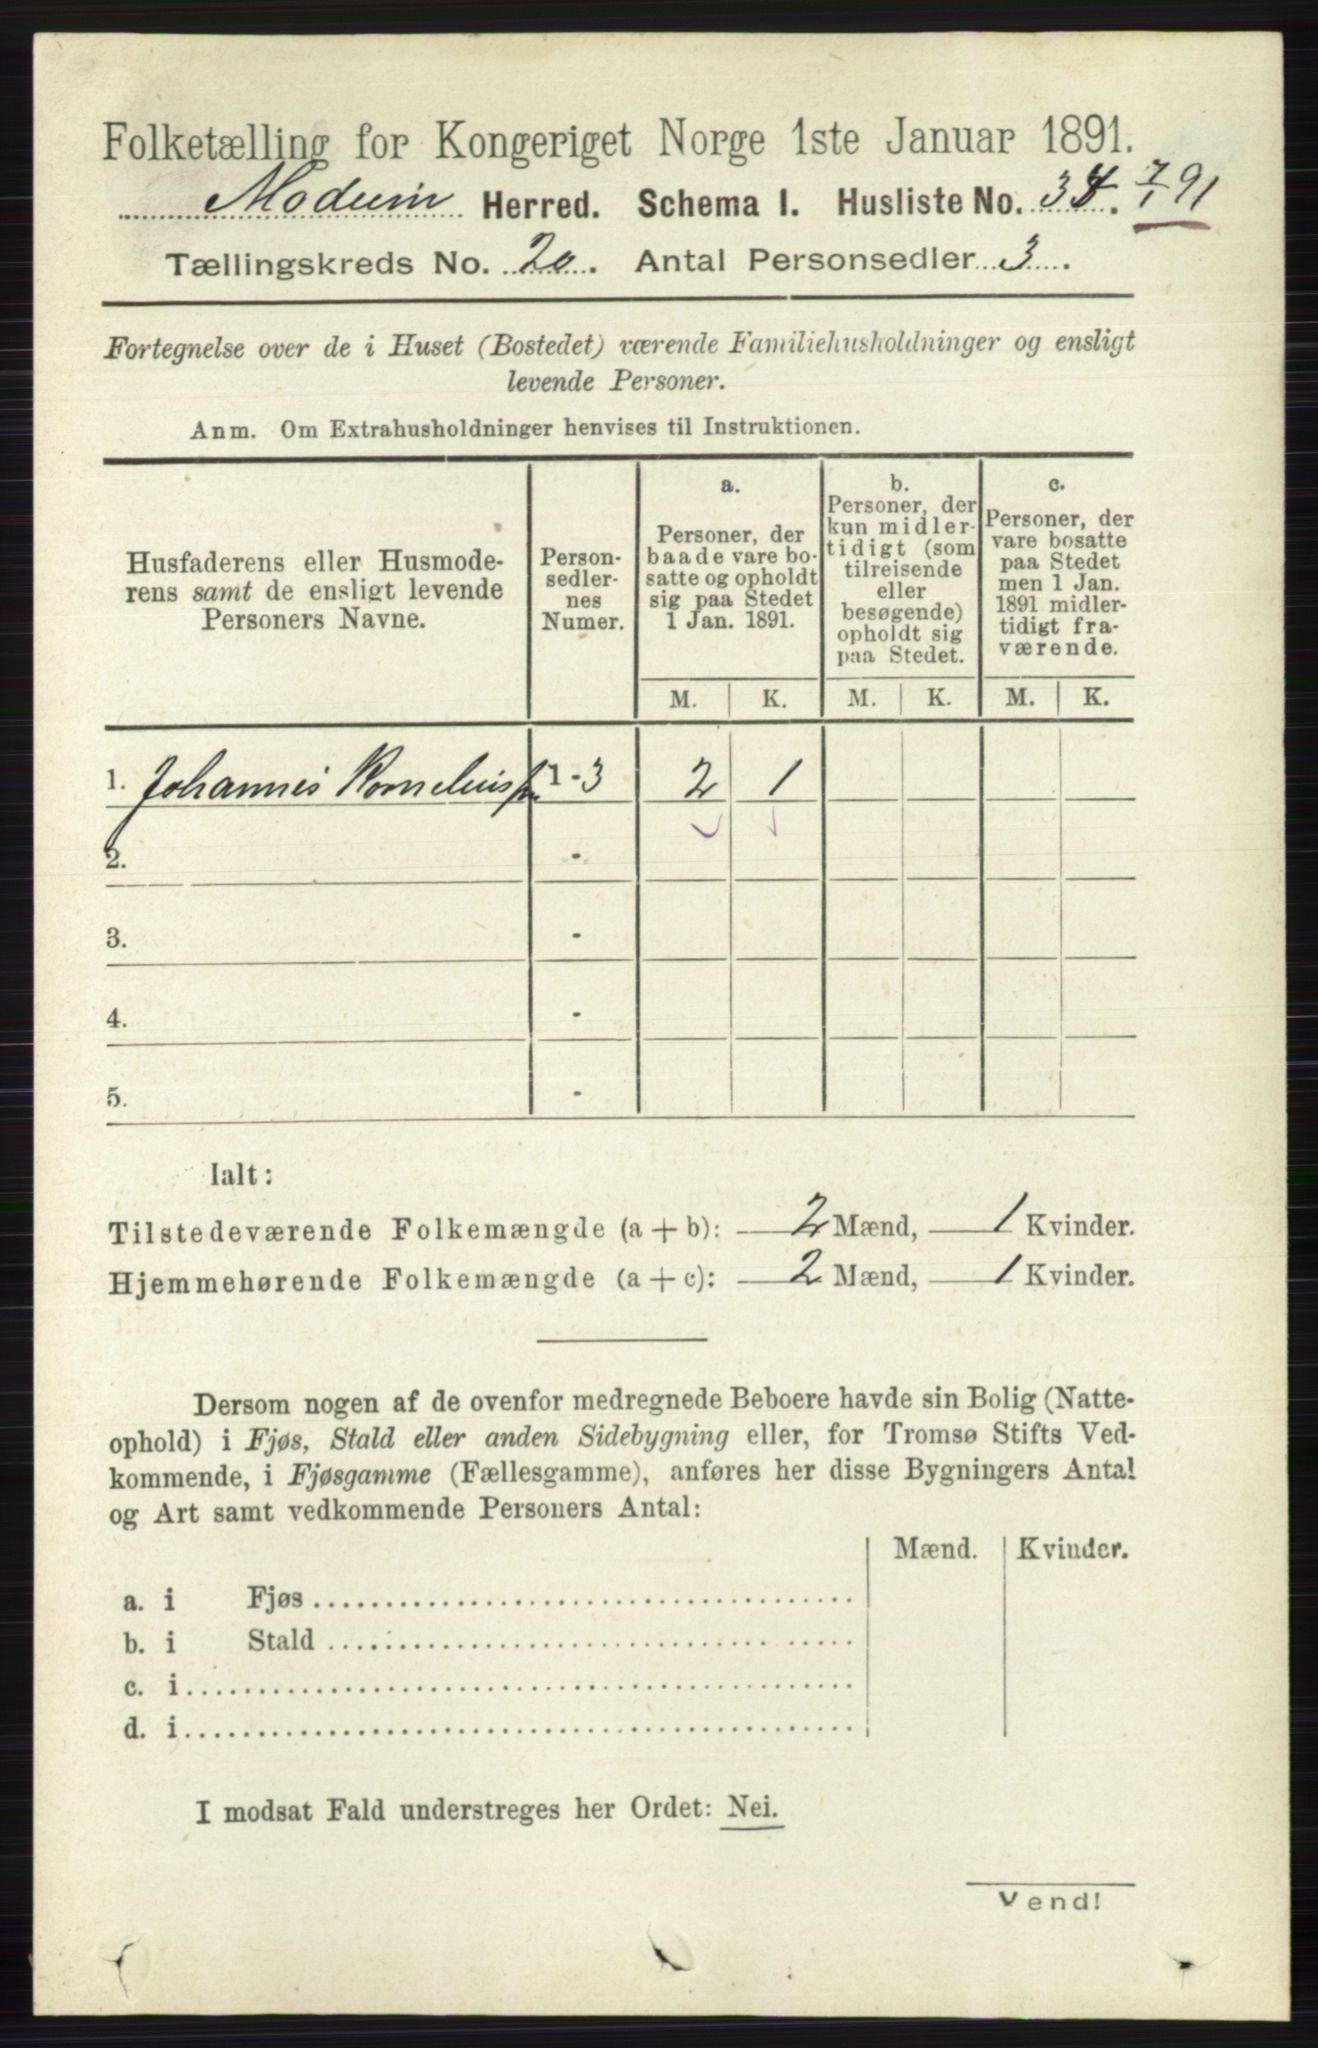 Folketælling for Kongeriget Norge 1ste Januar 1891.
Modum Herred. Schema I. Husliste No. 34. 791
Tællingskreds No. 20. Antal Personsedler 3.
Fortegnelse over de i Huset (Bostedet) værende Familiehusholdninger og ensligt
levende Personer.
Anm. Om Extrahusholdninger henvises til Instruktionen.
Husfaderens eller Husmode-
rens samt de ensligt levende
Personers Navne.
Person-
sedler-
nes
Numer.
a.
Personer, der
baade vare bo-
satte og opholdt
sig paa Stedet
1 Jan. 1891.
b.
Personer, der
kun midler-
tidigt (som
tilreisende
eller
besøgende)
opholdt sig
paa Stedet.
c.
Personer, der
vare bosatte
paa Stedet
men 1 Jan.
1891 midler-
tidigt fra-
værende.
M. K. M. K. M. K.
1. Johannes Korneliuss. 1-3 2 1
2. -
3. -
4. -
5. -
Ialt:
Tilstedeværende Folkemængde (a + b): 2 Mænd, 1 Kvinder.
Hjemmehørende Folkemængde (a + c): 2 Mænd, 1 Kvinder.
Dersom nogen af de ovenfor medregnede Beboere havde sin Bolig (Natte-
ophold) i Fjøs, Stald eller anden Sidebygning eller, for Tromsø Stifts Ved-
kommende, i Fjøsgamme (Fællesgamme), anføres her disse Bygningers Antal
og Art samt vedkommende Personers Antal:
Mænd. Kvinder.
a. i Fjøs
b. i Stald
c. i
d. i
I modsat Fald understreges her Ordet: Nei.
Vend!